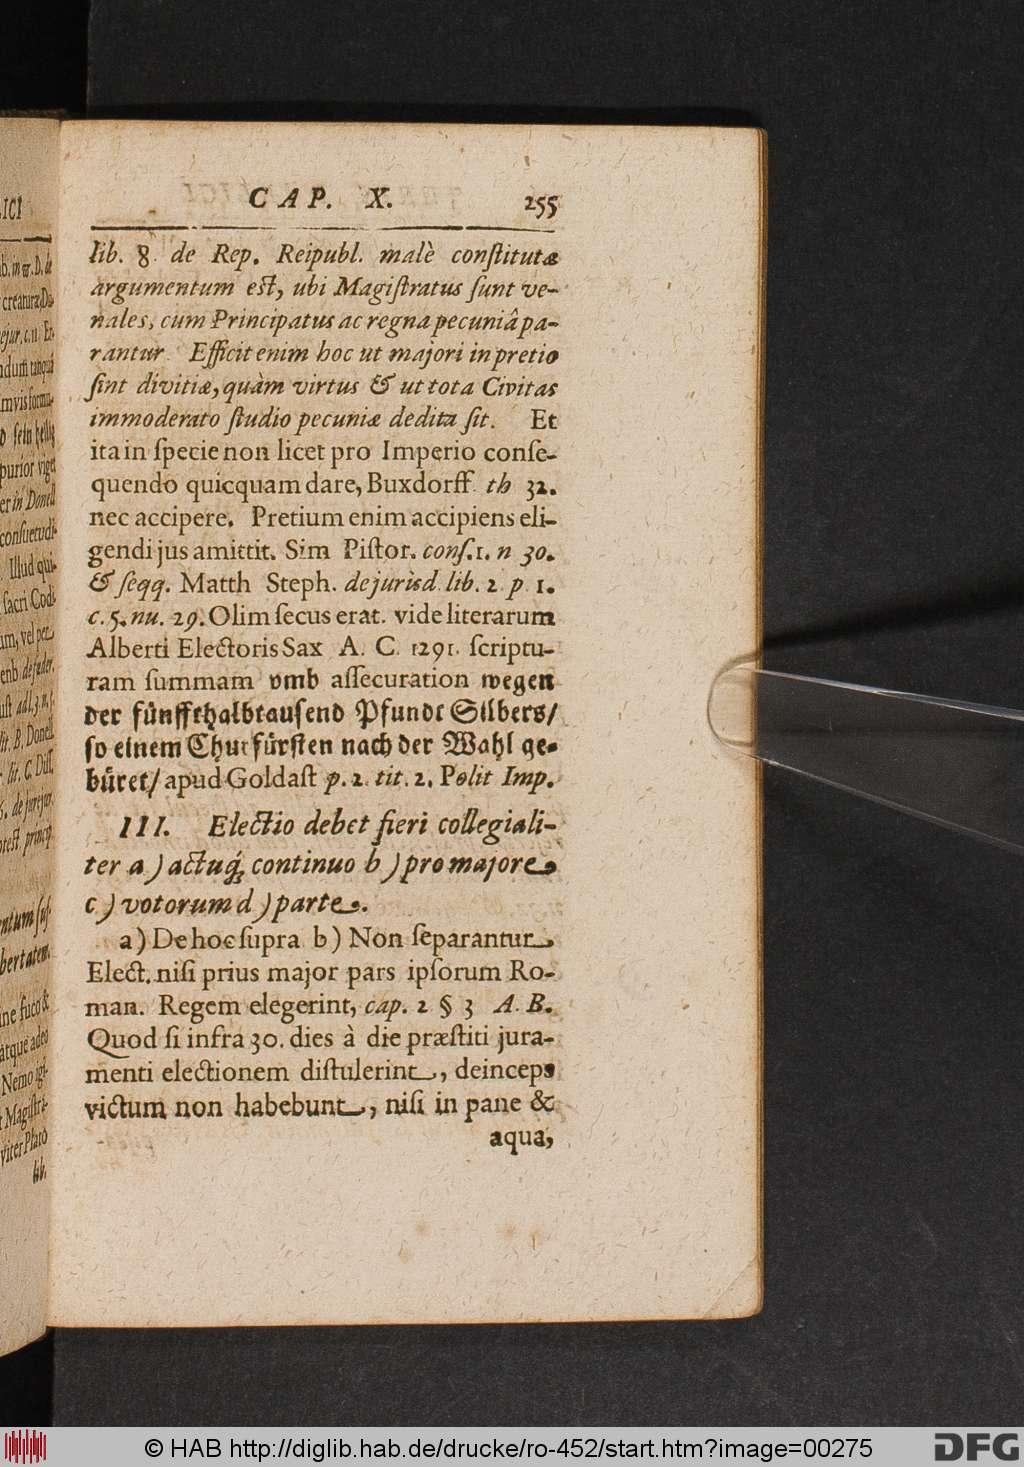 CAP. X. 255
lib. 8. de Rep. Reipubl. malè conſtitutæ
argumentum eſt, ubi Magiſtratus ſunt ve-
nales, cum Principatus ac regna pecuniâ pa-
rantur. Efficit enim hoc ut majori in pretio
ſint divitiæ, quàm virtus & ut tota Civitas
immoderato ſtudio pecuniæ dedita ſit. Et
ita in ſpecie non licet pro Imperio conſe-
quendo quicquam dare, Buxdorff. th 32.
nec accipere. Pretium enim accipiens eli-
gendi jus amittit. Sim Piſtor. conſ. 1. n 30.
& ſeqq. Matth Steph. de jurisd. lib. 2 p 1.
c. 5. nu. 29. Olim ſecus erat. vide literarum
Alberti Electoris Sax A. C. 1291. ſcriptu-
ram ſummam vmb aſſecuration wegen
der fünffthalbtauſend Pfundt Silbers/
ſo einem Churfürſten nach der Wahl ge-
büret/ apud Goldaſt p. 2. tit. 2. Polit Imp.
III. Electio debet fieri collegiali-
ter a) actuq́; continuo b) pro majore
c) votorum d) parte.
a) De hoc ſupra b) Non ſeparantur
Elect. niſi prius major pars ipſorum Ro-
man. Regem elegerint, cap. 2 § 3 A. B.
Quod ſi infra 30. dies à die præſtiti jura-
menti electionem diſtulerint, deinceps
victum non habebunt, niſi in pane &
aqua,
ICI
lib.
© HAB http://diglib.hab.de/drucke/ro-452/start.htm?image=00275
DFG